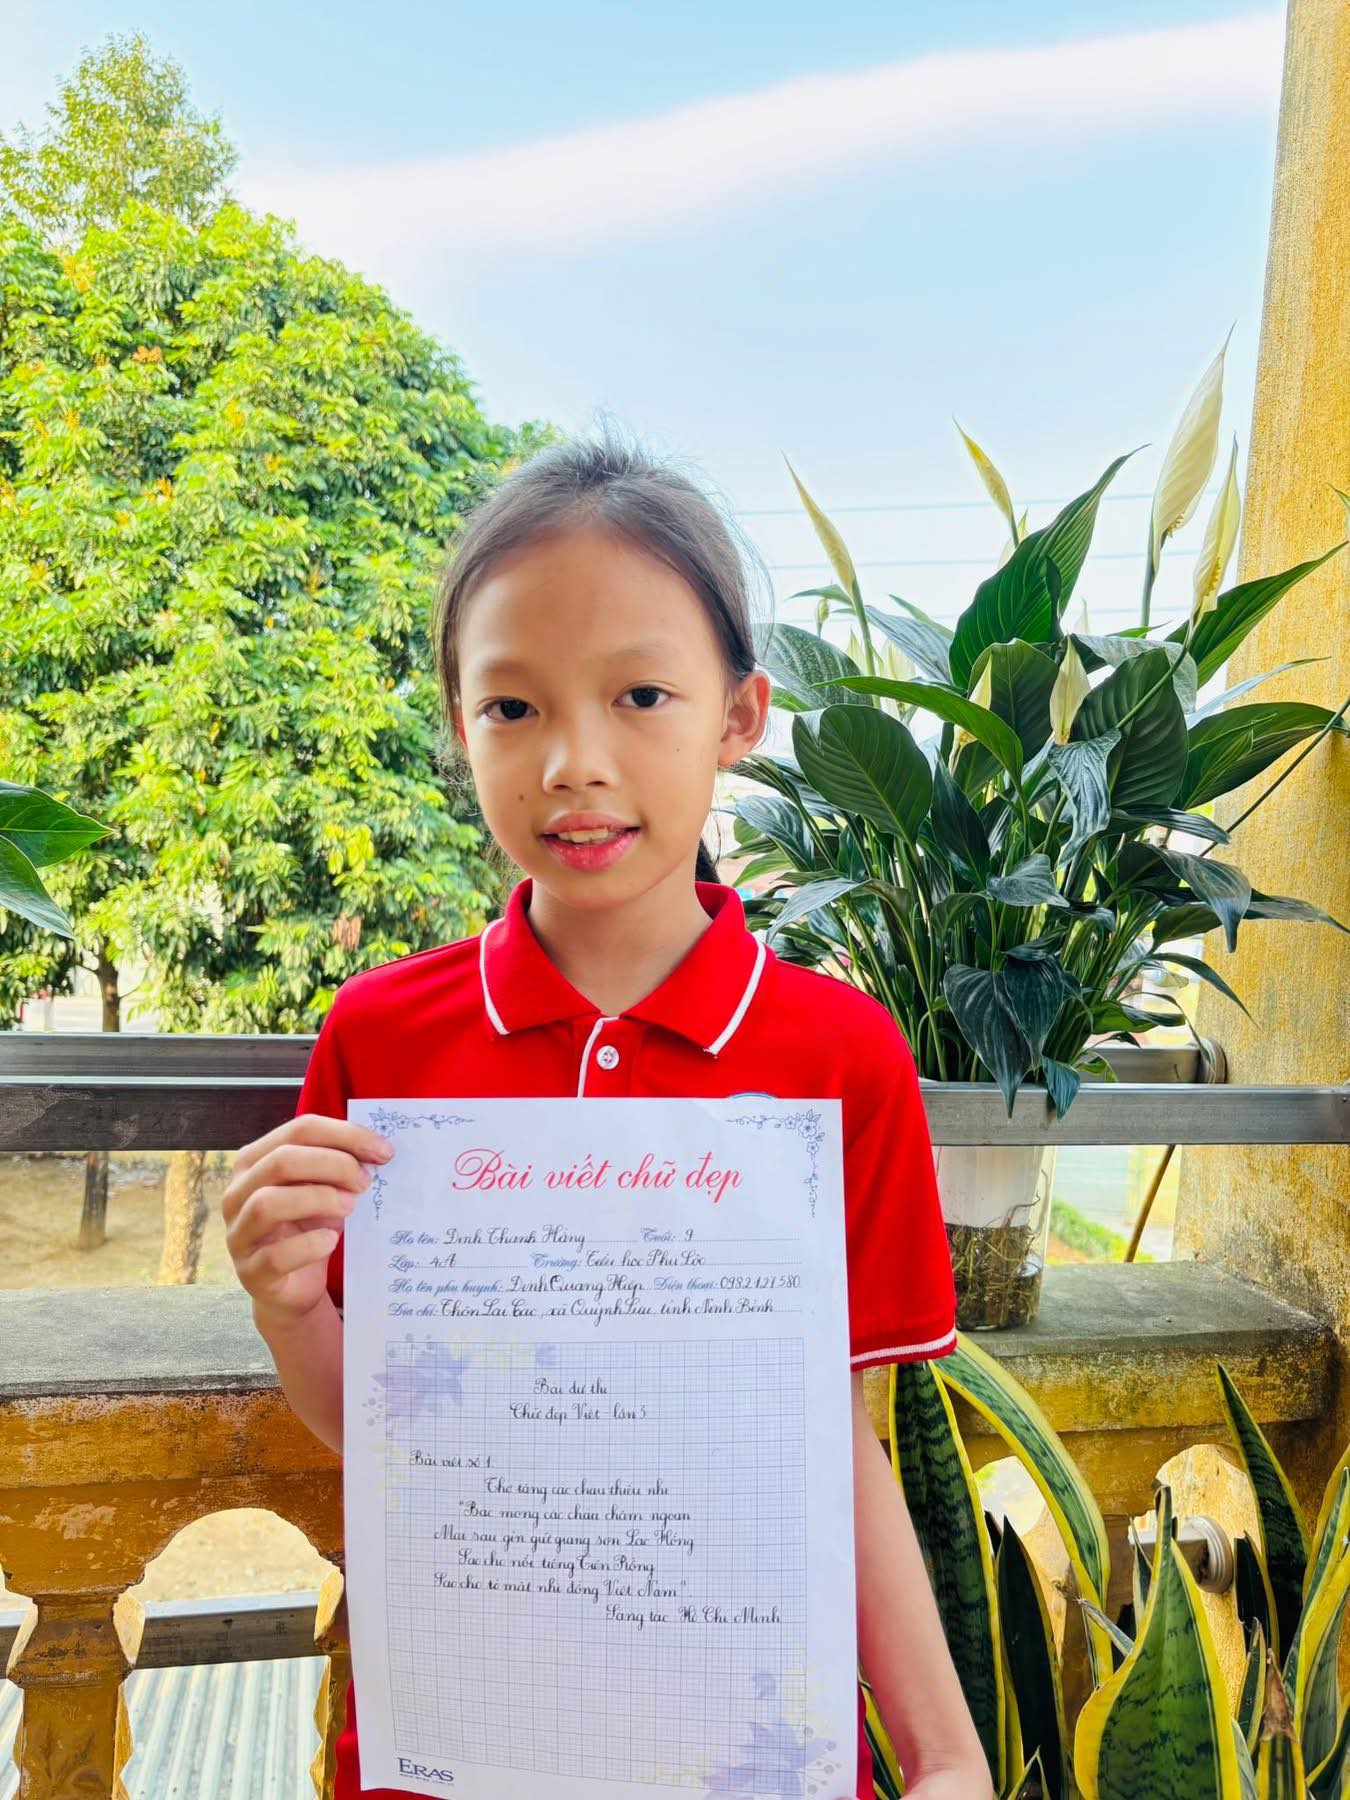 Bài viết chữ đẹp
Họ tên: Đinh Thanh Hằng Tuổi: 9
Lớp: 4A Trường: Tiểu học Phú Lộc
Họ tên phụ huynh: Đinh Quang Hiệp Điện thoại: 0982127580
Địa chỉ: Thôn Lại Các, xã Quỳnh Lưu, tỉnh Ninh Bình
Bài dự thi
Chữ đẹp Việt lần 5
Bài viết số 1.
Thơ tặng các cháu thiếu nhi
"Bác mong các cháu chăm ngoan
Mai sau gìn giữ giang sơn Lạc Hồng
Sao cho nổi tiếng Tiên Rồng
Sao cho tỏ mặt nhi đồng Việt Nam".
Sáng tác Hồ Chí Minh
ERAS